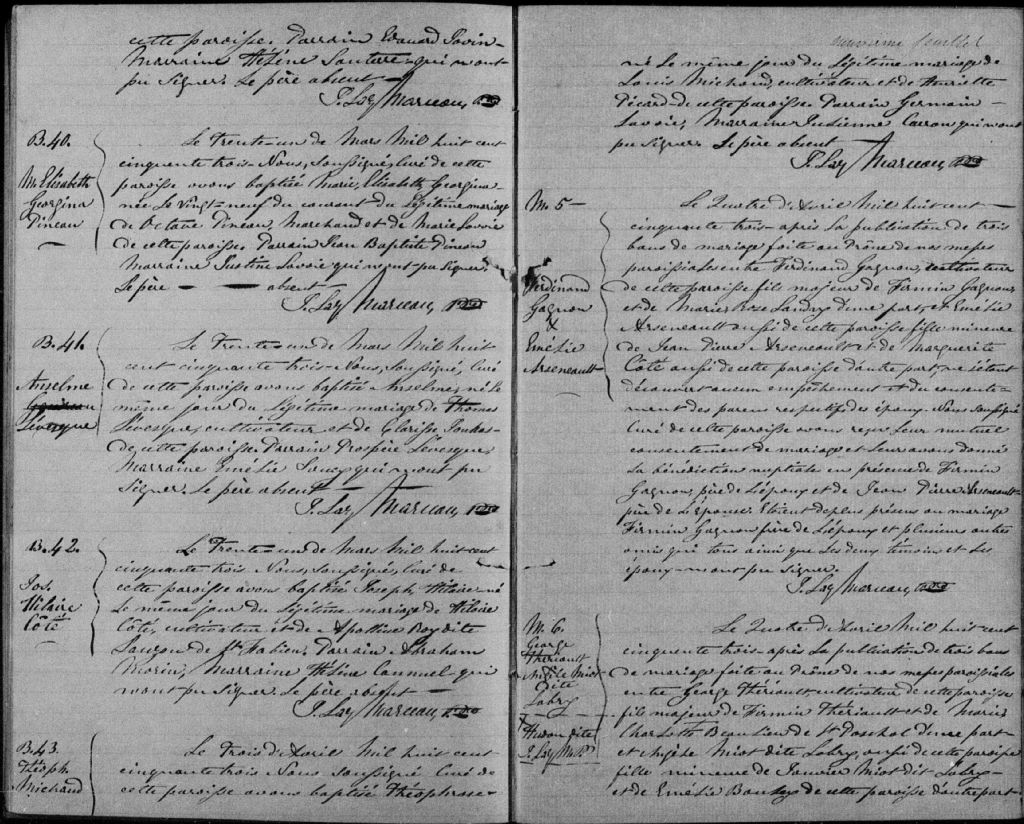 cette paroisse. Parrain Edouard Jovin
Marraine Hélène Santerre qui n'ont
pu signer. Le père absent
J. Laz Marceau, Ptre
B. 40.
M. Elisabeth
Georgina
Pineau
Le Trente-un de Mars Mil huit cent
cinquante trois Nous, soussigné, Curé de cette
paroisse avons baptisé Marie, Elisabeth, Georgina
née Le vingt-neuf du courant du Légitime mariage
de Octave Pineau, Marchand et de Marie Lavoie
de cette paroisse. Parrain Jean Baptiste Pineau
Marraine Justine Lavoie qui n'ont pu signer.
Le père absent
J. Laz Marceau, Ptre
B. 41.
Anselme
Lévesque
Le Trente-un de Mars Mil huit
cent cinquante trois Nous, soussigné, Curé
de cette paroisse avons baptisé Anselme, né le
même jour du Légitime mariage de Thomas
Lévesque, cultivateur et de Glorisse
de cette paroisse. Parrain Prospère Lévesque
Marraine Emélie qui n'ont pu
signer. Le père absent
J. Laz Marceau, Ptre
B. 42.
Jos.
Hilaire
Côté
Le Trente-un de Mars Mil huit cent
cinquante trois Nous, soussigné, Curé de
cette paroisse avons baptisé Joseph, Hilaire né
Le même jour du Légitime mariage de Hilaire
Côté, cultivateur et de Apolline Roy dite
Lauzon de St Fabien. Parrain Abraham
Morin, Marraine Hélène Cannuel qui
n'ont pu signer. Le père absent
J. Laz Marceau, Ptre
B. 43.
Théoph.
Michaud
Le Trois d'Avril Mil huit cent
cinquante trois Nous soussigné Curé de
cette paroisse avons baptisé Théophrase
neuvième feuillet
né Le même jour du Légitime mariage de
Louis Michaud, cultivateur et de Henriette
Picard de cette paroisse. Parrain Germain
Lavoie, Marraine Julienne Caron qui n'ont
pu signer. Le père absent
J. Laz Marceau, Ptre
M. 5
Ferdinand
Gagnon
&
Emélie
Arseneault
Le Quatre d'Avril Mil huit cent
cinquante trois après La publication de trois
bans de mariage faite au Prône de nos messes
paroissiales entre Ferdinand Gagnon, cultivateur
de cette paroisse fils majeur de Firmin Gagnon
et de Marie Rose Landry d'une part, et Emélie
Arseneault aussi de cette paroisse fille mineure
de Jean Pierre Arseneault et de Marguerite
Côté aussi de cette paroisse d'autre part, ne s'étant
découvert aucun empêchement et du consente-
ment des parens respectifs des époux Nous soussigné
Curé de cette paroisse avons reçu Leur mutuel
consentement de mariage et Leur avons donné
La bénédiction nuptiale en présence de Firmin
Gagnon, père de L'époux et de Jean Pierre Arseneault
père de L'épouse. Etaient de plus présens au mariage
Firmin Gagnon frère de L'époux et plusieurs autres
amis qui tous ainsi que Les deux témoins et Les
époux n'ont pu signer.
J. Laz Marceau, Ptre
M. 6.
George
Thériault
Angèle Miot
dite
Labry
X Hudon dite
J. Laz M. Ptre
Le Quatre d'Avril Mil huit cent
cinquante trois après La publication de trois bans
de mariage faite au Prône de nos messes paroissiales
entre George Thériault cultivateur de cette paroisse
fils majeur de Firmin Thériault et de Marie
Charlotte Beaulieu de St Paschal d'une part
et Angèle Miot dite Labry aussi de cette paroisse
fille mineure de Janvier Miot dit Labry
et de Emélie de cette paroisse d'autre part